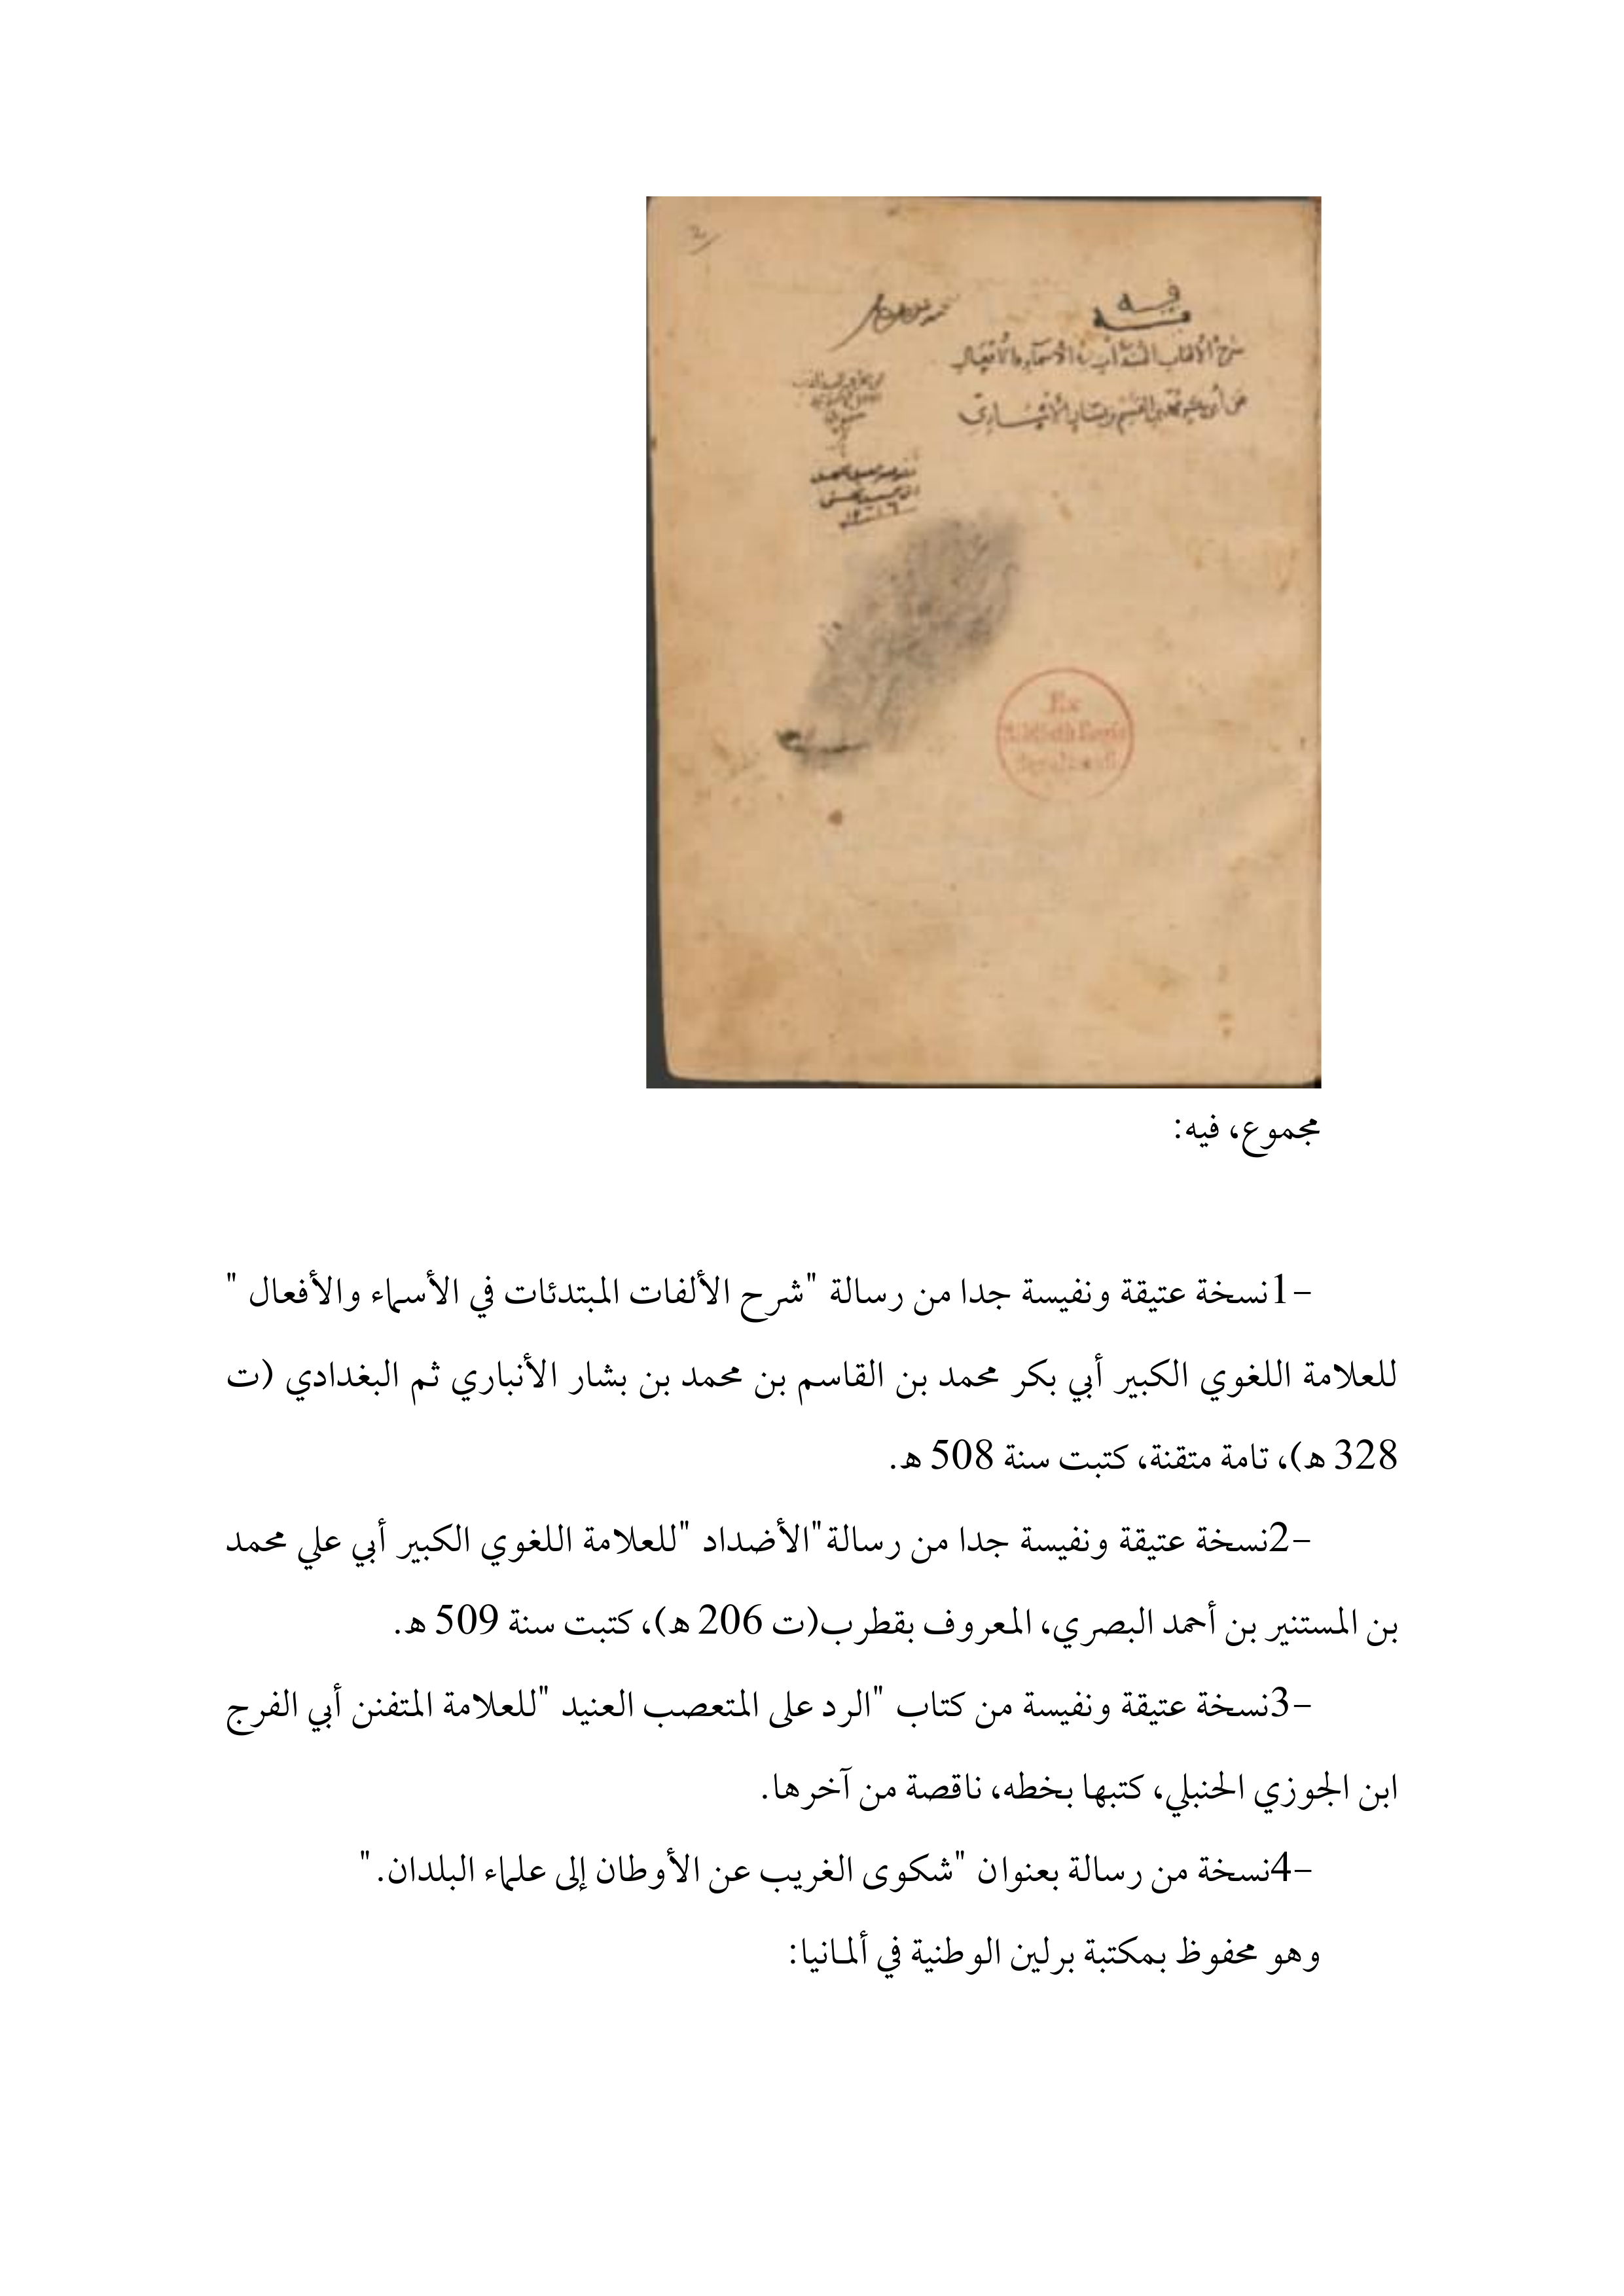 فيه
شرح الألفات المبتدآت في الأسماء والأفعال
عن أبي بكر محمد بن القسم بن بشار الأنباري
Ex
مجموع، فيه:
-1نسخة عتيقة ونفيسة جدا من رسالة "شرح الألفات المبتدئات في الأسماء والأفعال "
للعلامة اللغوي الكبير أبي بكر محمد بن القاسم بن محمد بن بشار الأنباري ثم البغدادي (ت
328 ه)، تامة متقنة، كتبت سنة 508 ه.
-2نسخة عتيقة ونفيسة جدا من رسالة"الأضداد "للعلامة اللغوي الكبير أبي علي محمد
بن المستنير بن أحمد البصري، المعروف بقطرب(ت 206 ه)، كتبت سنة 509 ه.
-3نسخة عتيقة ونفيسة من كتاب "الرد على المتعصب العنيد "للعلامة المتفنن أبي الفرج
ابن الجوزي الحنبلي، كتبها بخطه، ناقصة من آخرها.
-4نسخة من رسالة بعنوان "شكوى الغريب عن الأوطان إلى علماء البلدان."
وهو محفوظ بمكتبة برلين الوطنية في ألمانيا: